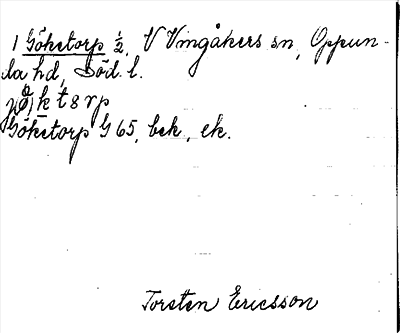 1 Göketorp ½, V Vingåkers sn, Oppun-
la hd, Söd. l.
Göketorp G 65, bek, ek.
Torsten Ericsson